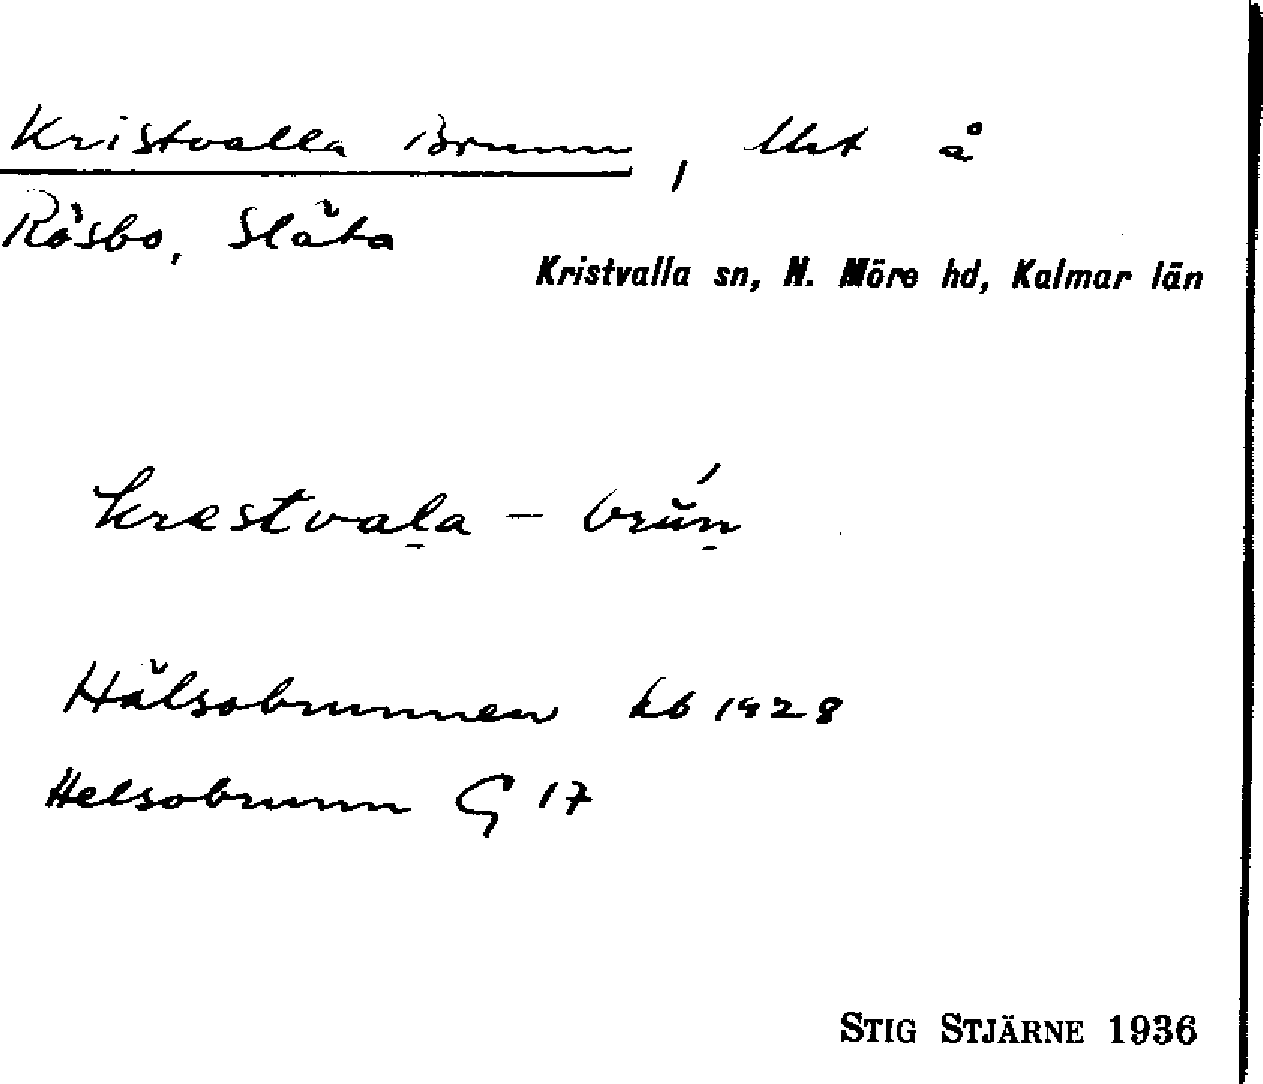 Kristvalla Brunn, Uht å
Rösbo, Släta
Kristvalla sn, N. Möre hd, Kalmar län
krestvala - brún
Hälsobrunnen hb 1928
Helsobrunn G 17
STIG STJÄRNE 1936